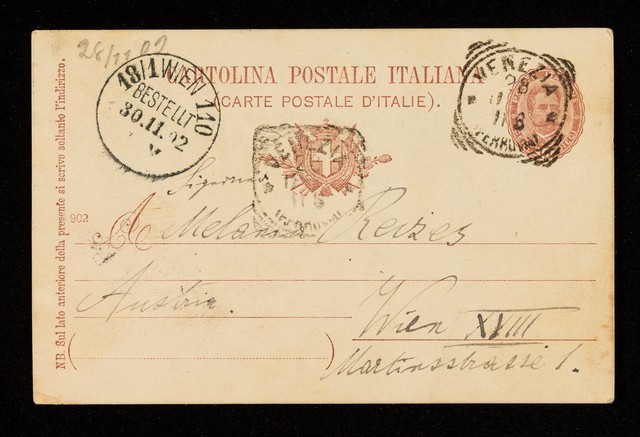 28/11 02
CARTOLINA POSTALE ITALIANA
(CARTE POSTALE D'ITALIE).
18/1 WIEN 110
BESTELLT
30.11.02
V
VENEZIA
28
11
(FERROVIA)
VENEZIA
NB. Sul lato anteriore della presente si scrive soltanto l'indirizzo.
902
Signorina
A Melania Reizes
Austria.
Wien XVIII
Martinsstrasse 1.